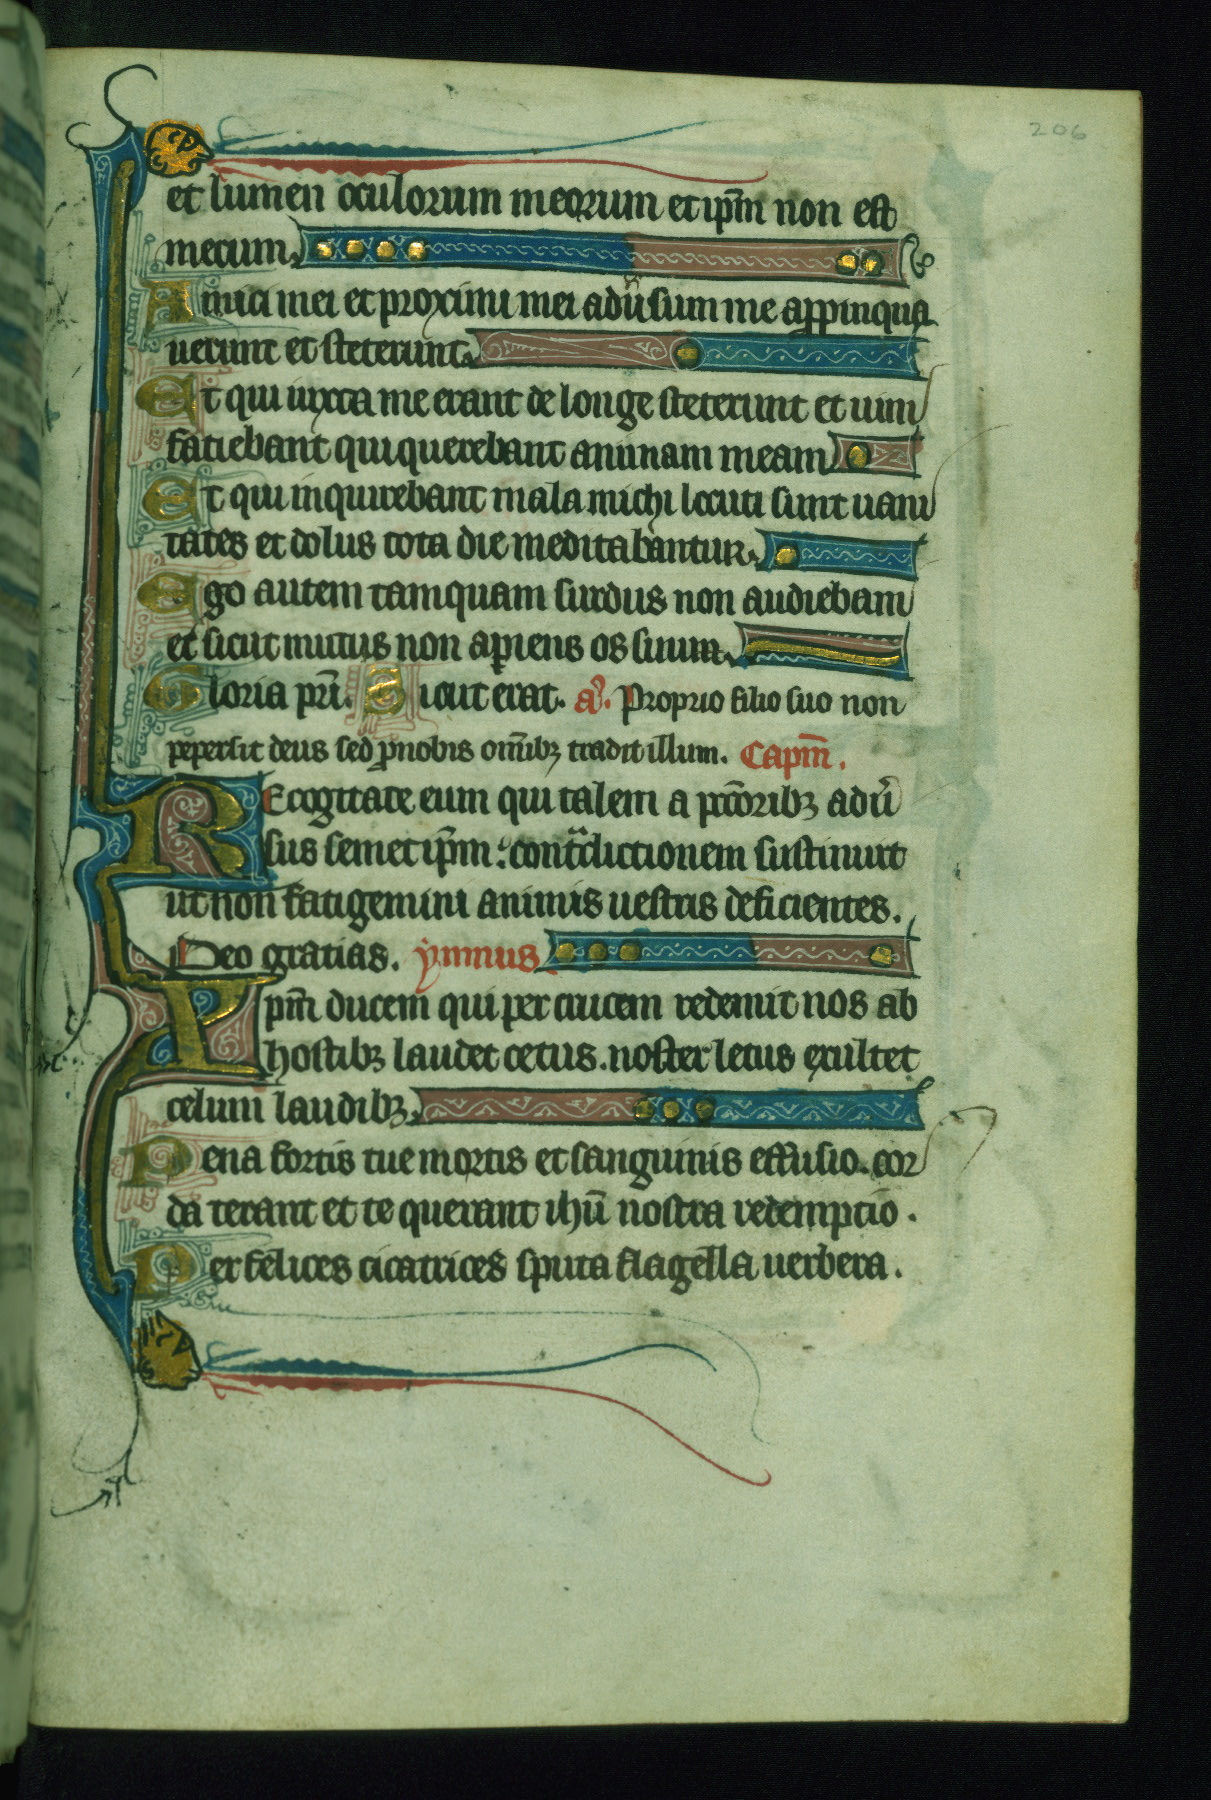 206
et lumen oculorum meorum et ip̄m non est
mecum.
Amici mei et proximi mei adu̅sum me appinqua
uerunt et steterunt.
Et qui iuxta me erant de longe steterunt et uim
fatiebant qui querebant animam meam
Et qui inquirebant mala michi locuti sunt uani
tates et dolus tota die meditabantur.
Ego autem tamquam surdus non audiebam
et sicut mutus non aꝑiens os suum.
Gloria pr̄i. Sicut erat. a͛. Proprio filio suo non
pepersit deus sed ꝓ nobis om̄ibꝫ tradit illum. Capm̄.
Recogitate eum qui talem a pc̄oribꝫ adu̅
sus semet ip̄m: contᷓdictionem sustinuit
ut non fatigemini animis uestris deficientes.
Deo gratias. ẏmnus
Xpm̄ ducem qui per crucem redemit nos ab
hostibꝫ laudet cetus. noster letus exultet
celum laudibꝫ.
Pena fortis tue mortis et sanguinis effusio. cor
da terant et te querant ihū nostra redemptio.
Per felices cicatrices sputa flagella uerbera.